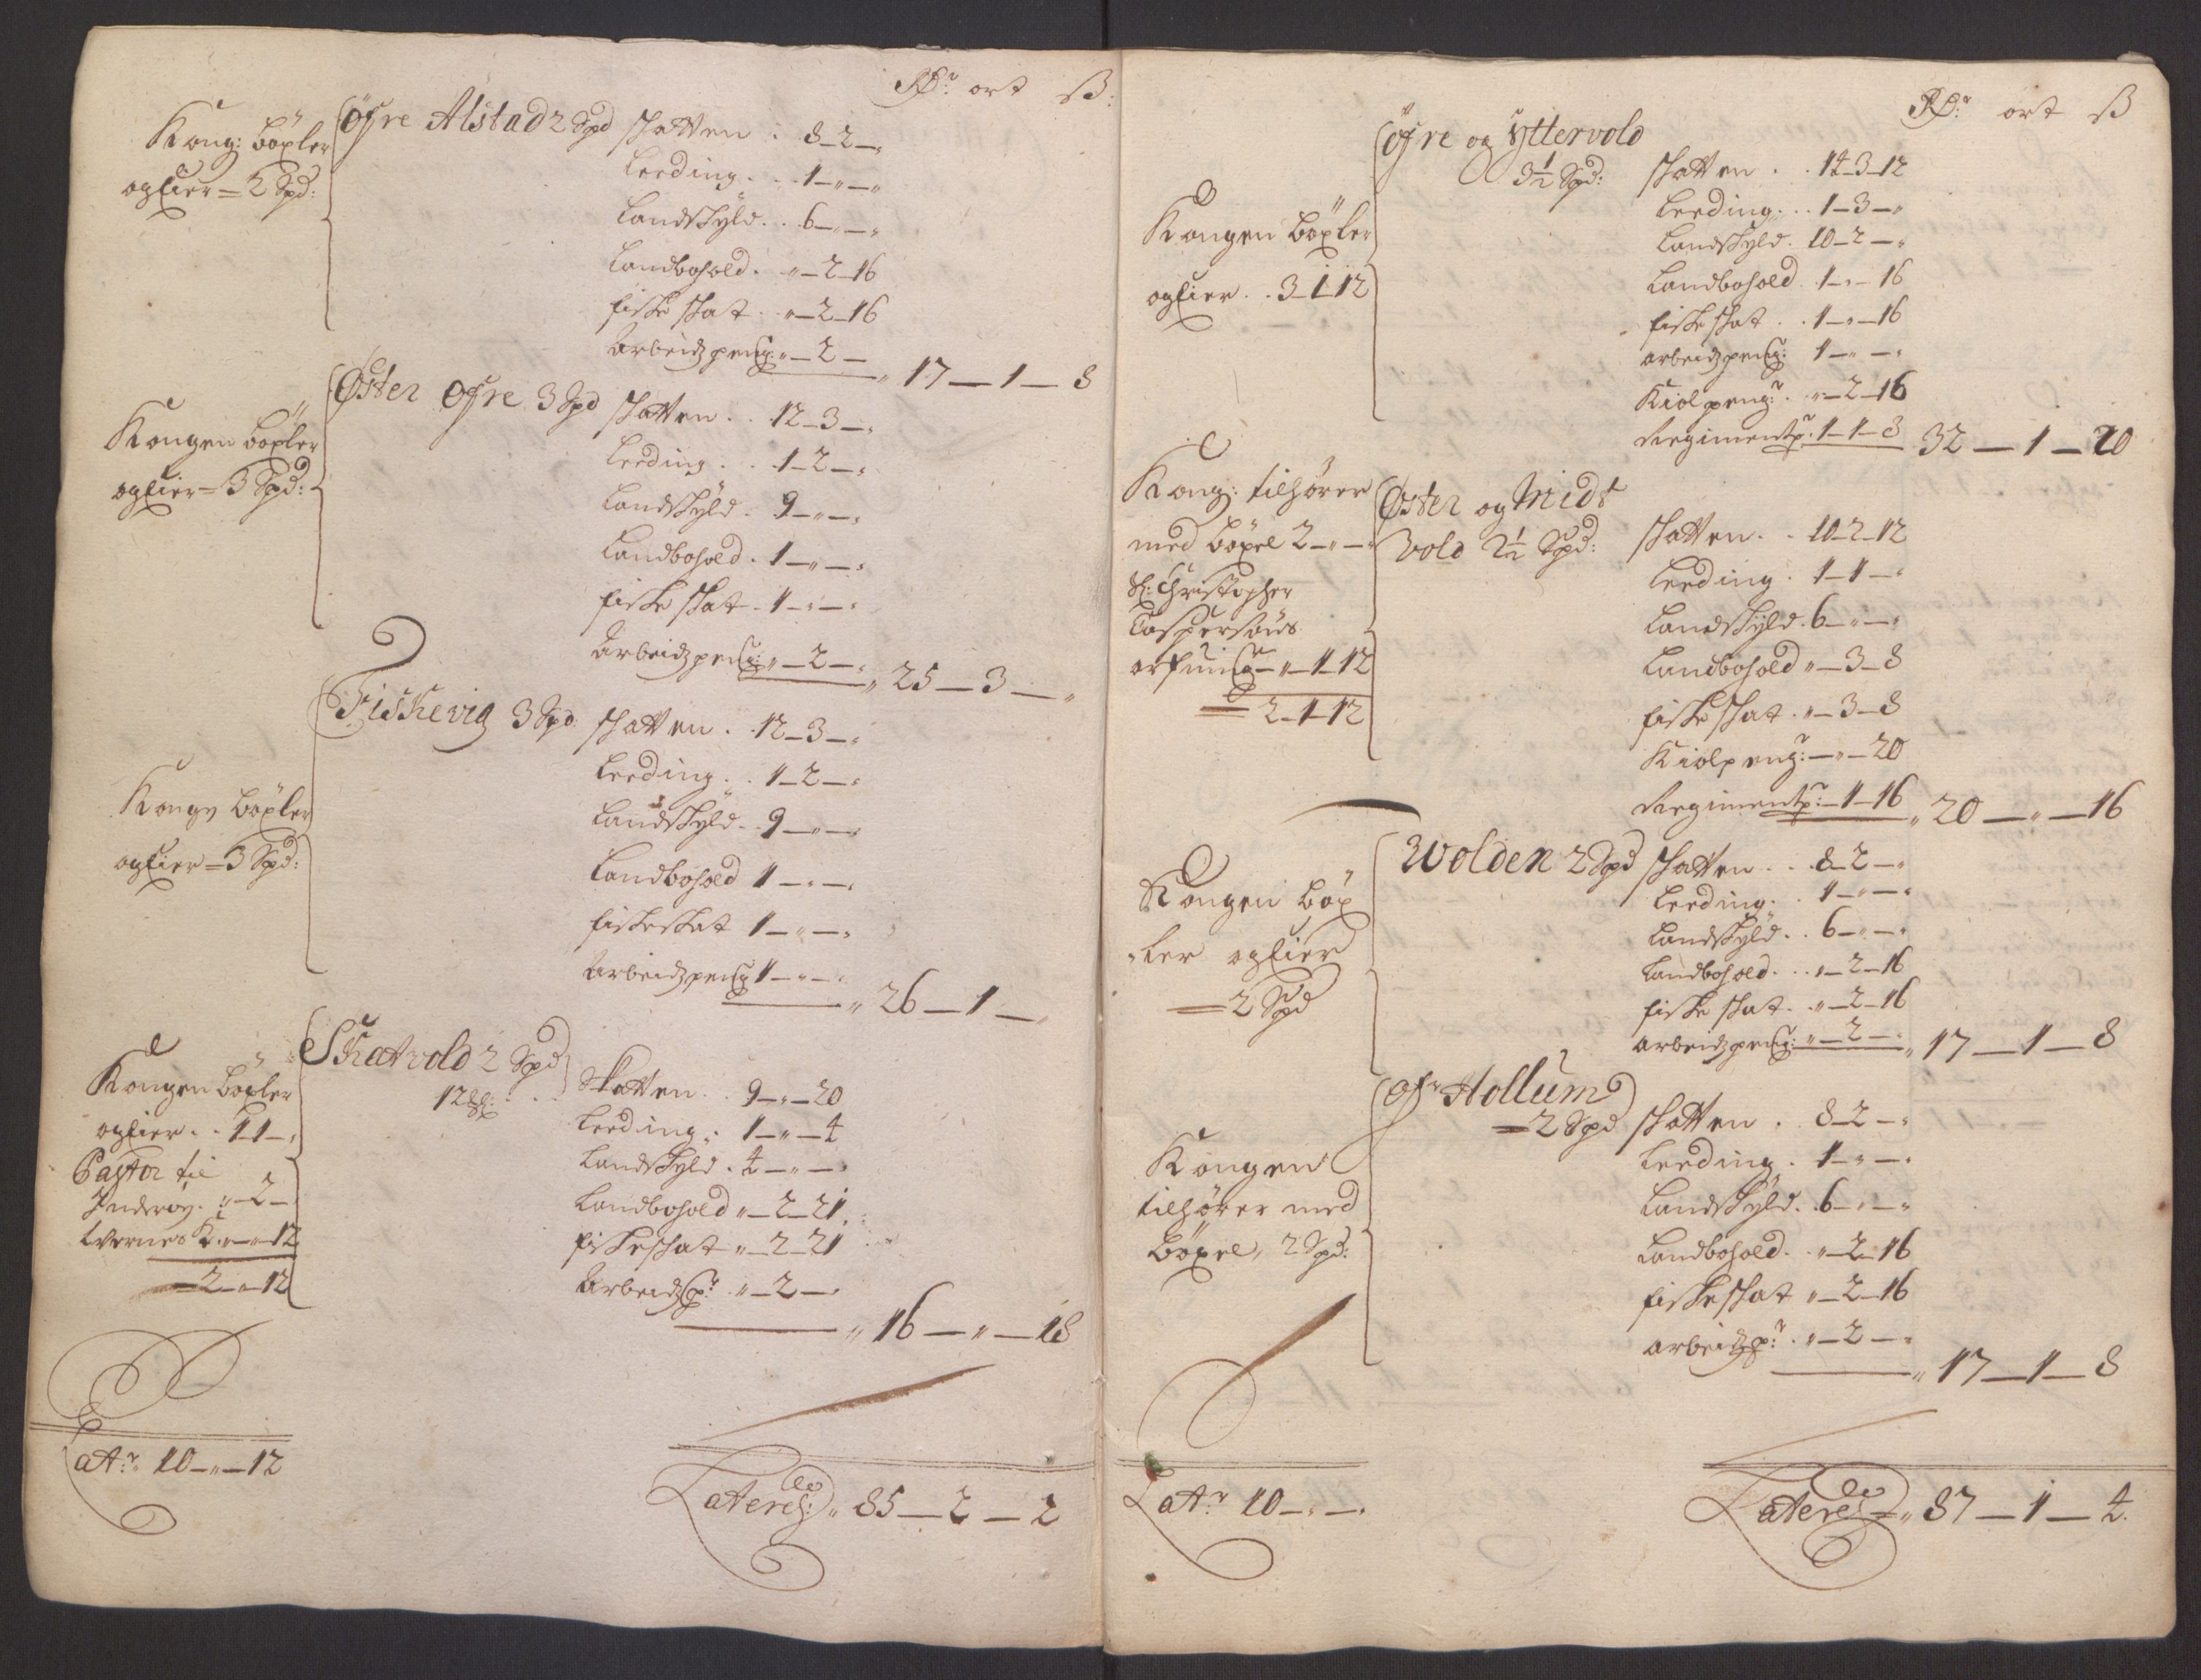 Rdr: ort ß:
Kong: böxler
og Eier = 2 Spd:
Öfre Alstad 2 Spd
skatten . 8 - 2 - "
Leeding . . 1 - " - "
Landskÿld . . 6 - " - "
Landbohold . " - 2 - 16
fiske skat . " - 2 - 16
Arbeidzpeng: " - 2 -
" 17 - 1 - 8
Kongen böxler
og Eier = 3 Spd:
Øster øfre 3 Spd
skatten . . 12 - 3 - "
Leeding . . 1 - 2 - "
Landskÿld . 9 - " - "
Landbohold . 1 - " - "
fiske skat . 1 - " - "
Arbeidzpeng: " - 2 - "
" 25 - 3 - "
Kongen böxler
og Eier = 3 Spd:
Fiskevig 3 Spd
skatten . 12 - 3 - "
Leeding . . 1 - 2 - "
Landskÿld . . 9 - " - "
Landbohold 1 - " - "
fiskeskat 1 - " - "
Arbeidzpeng 1 - " - "
" 26 - 1 - "
Kongen böxler
og Eier . . 1 1 - "
Pastor til
Inderøy . " - 2 -
Wernes K. " - " - 12
= 2 - " - 12
Skatvold 2 Spd
12 . .
Skatten . . 9 - " - 20
Leeding . 1 - " - 4
Landskÿld . 4 - " - "
Landbohold " - 2 - 21
fiskeskat " - 2 - 21
Arbeidzpr: " - 2 - "
" 16 - " - 18
Latr: 10 - " - 12
Lateris: " 85 - 2 - 2
Rdr: ort ß
Kongen böxler
og Eier . . 3 - 1 - 12
Öfre og Ÿttervold
3 1/2 Spd:
skatten . . 14 - 3 - 12
Leeding . . 1 - 3 - "
Landskyld . 10 - 2 - "
Landbohold . 1 - " - 16
fiske skat . . 1 - " - 16
arbeidzpeng: 1 - " - "
Kiölpengr: . " - 2 - 16
Regimentpr: 1 - 1 - 8
32 - 1 - 20
Kong: tilhører
med böxel 2 - " - "
Sl: Christopher
Caspersöns
arfuing " - 1 - 12
= 2 - 1 - 12
Øster og Midt
Vold 2 1/2 Spd:
skatten . . 10 - 2 - 12
Leeding . 1 - 1 - "
Landskÿld . 6 - " - "
Landbohold " - 3 - 8
fiske skat . " - 3 - 8
Kiölpengr: - " - 20
Regimentpr: - 1 - 16
" 20 - " - 16
Kongen böx
ler og Eier
= 2 Spd
Wolden 2 Spd
skatten . . 8 - 2 - "
Leeding . . 1 - " - "
Landskÿld . . 6 - " - "
Landbohold . . " - 2 - 16
fiske skat . " - 2 - 16
arbeidzpeng: " - 2 - "
" 17 - 1 - 8
Kongen
tilhører med
Böxel, 2 Spd:
Øfr Hollum
= 2 Spd
skatten . 8 - 2 - "
Leeding . 1 - " - "
Landskÿld . 6 - " - "
Landbohold . " - 2 - 16
fiskeskat " - 2 - 16
arbeidzpr: . " - 2 - "
" 17 - 1 - 8
Latr: 10 - " - "
Lateris " 87 - 1 - 4